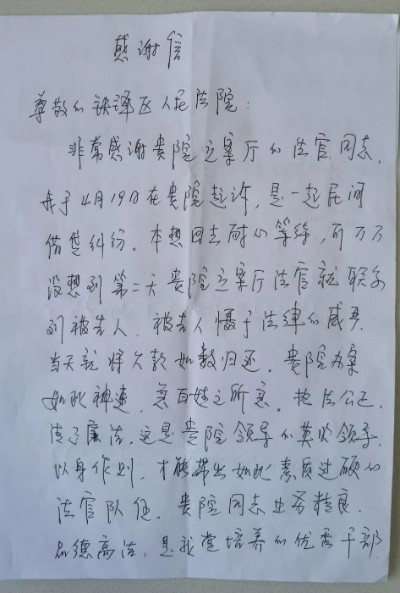 感谢信
尊敬的诀译区人民法院：
非常感谢贵院立案厅的法官同志，
我于4月19日在贵院起诉，是一起民间
借贷纠纷。本想回去耐心等待，可万万
没想到第二天贵院立案厅法官就联系
到被告人，被告人慑于法律的威严
当天就将欠款如数归还。贵院办案
如此神速，急百姓之所急。执法公正、
清廉，这是贵院领导的英明领导、
以身作则，才能带出如此素质过硬的
法官队伍。贵院同志业务精良、
品德高洁，是我党培养的优秀干部